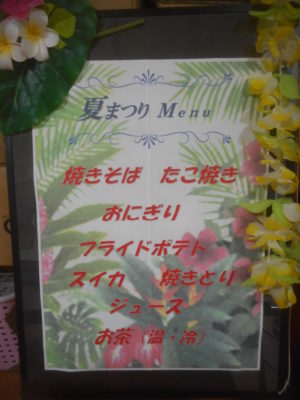 夏まつり Menu
焼きそば　たこ焼き
おにぎり
フライドポテト
スイカ　焼きとり
ジュース
お茶（温・冷）